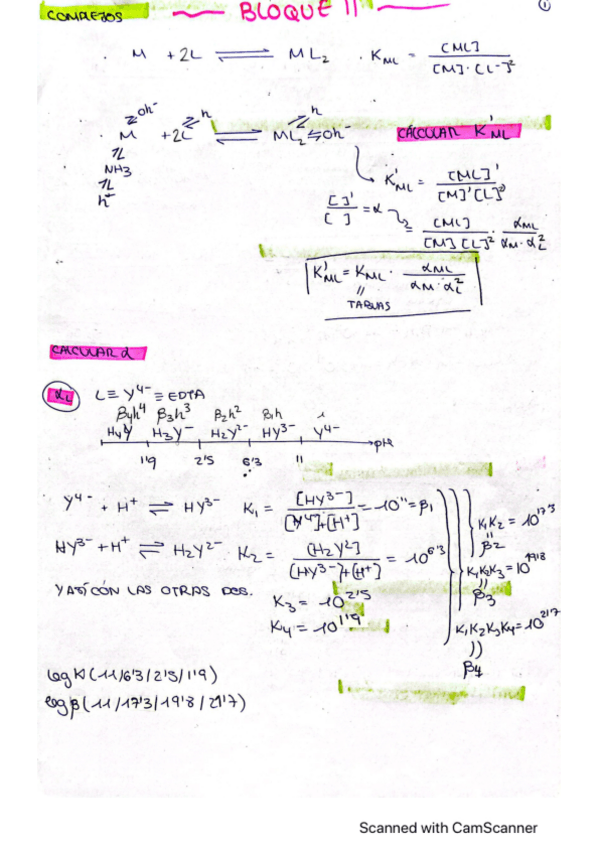 COMPLEJOS
BLOQUE II
1
M + 2L ⇌ ML₂ . K_ML = [ML] / [M]·[L-]²
oh⁻ h h
M + 2L ⇌ ML₂ ⇌ oh⁻ CALCULAR K'_ML
NH3
h⁺
K'_ML = [ML]' / [M]'[L]²
[ ]' / [ ] = α = [ML] / [M][L]² · α_ML / α_M·α_L²
K'_ML = K_ML · α_ML / α_M·α_L²
"
TABLAS
CALCULAR α
α_L L ≡ Y⁴⁻ ≡ EDTA
β₄h⁴ β₃h³ β₂h² β₁h 1
H₄Y H₃Y⁻ H₂Y²⁻ HY³⁻ Y⁴⁻ pH
1'9 2'5 6'3 11
Y⁴⁻ + H⁺ ⇌ HY³⁻ K₁ = [HY³⁻] / [Y⁴]+[H⁺] = 10¹¹ = β₁
HY³⁻ + H⁺ ⇌ H₂Y²⁻ K₂ = [H₂Y²] / [HY³⁻]+[H⁺] = 10^6'3
Y ASÍ CON LAS OTRAS DOS.
K₃ = 10^2'5
K₄ = 10^1'9
K₁K₂ = 10^17'3
"
β₂
K₁K₂K₃ = 10^19'8
"
β₃
K₁K₂K₃K₄ = 10^21'7
"
β₄
log K (11/6'3/2'5/1'9)
log β (11/17'3/19'8/21'7)
Scanned with CamScanner